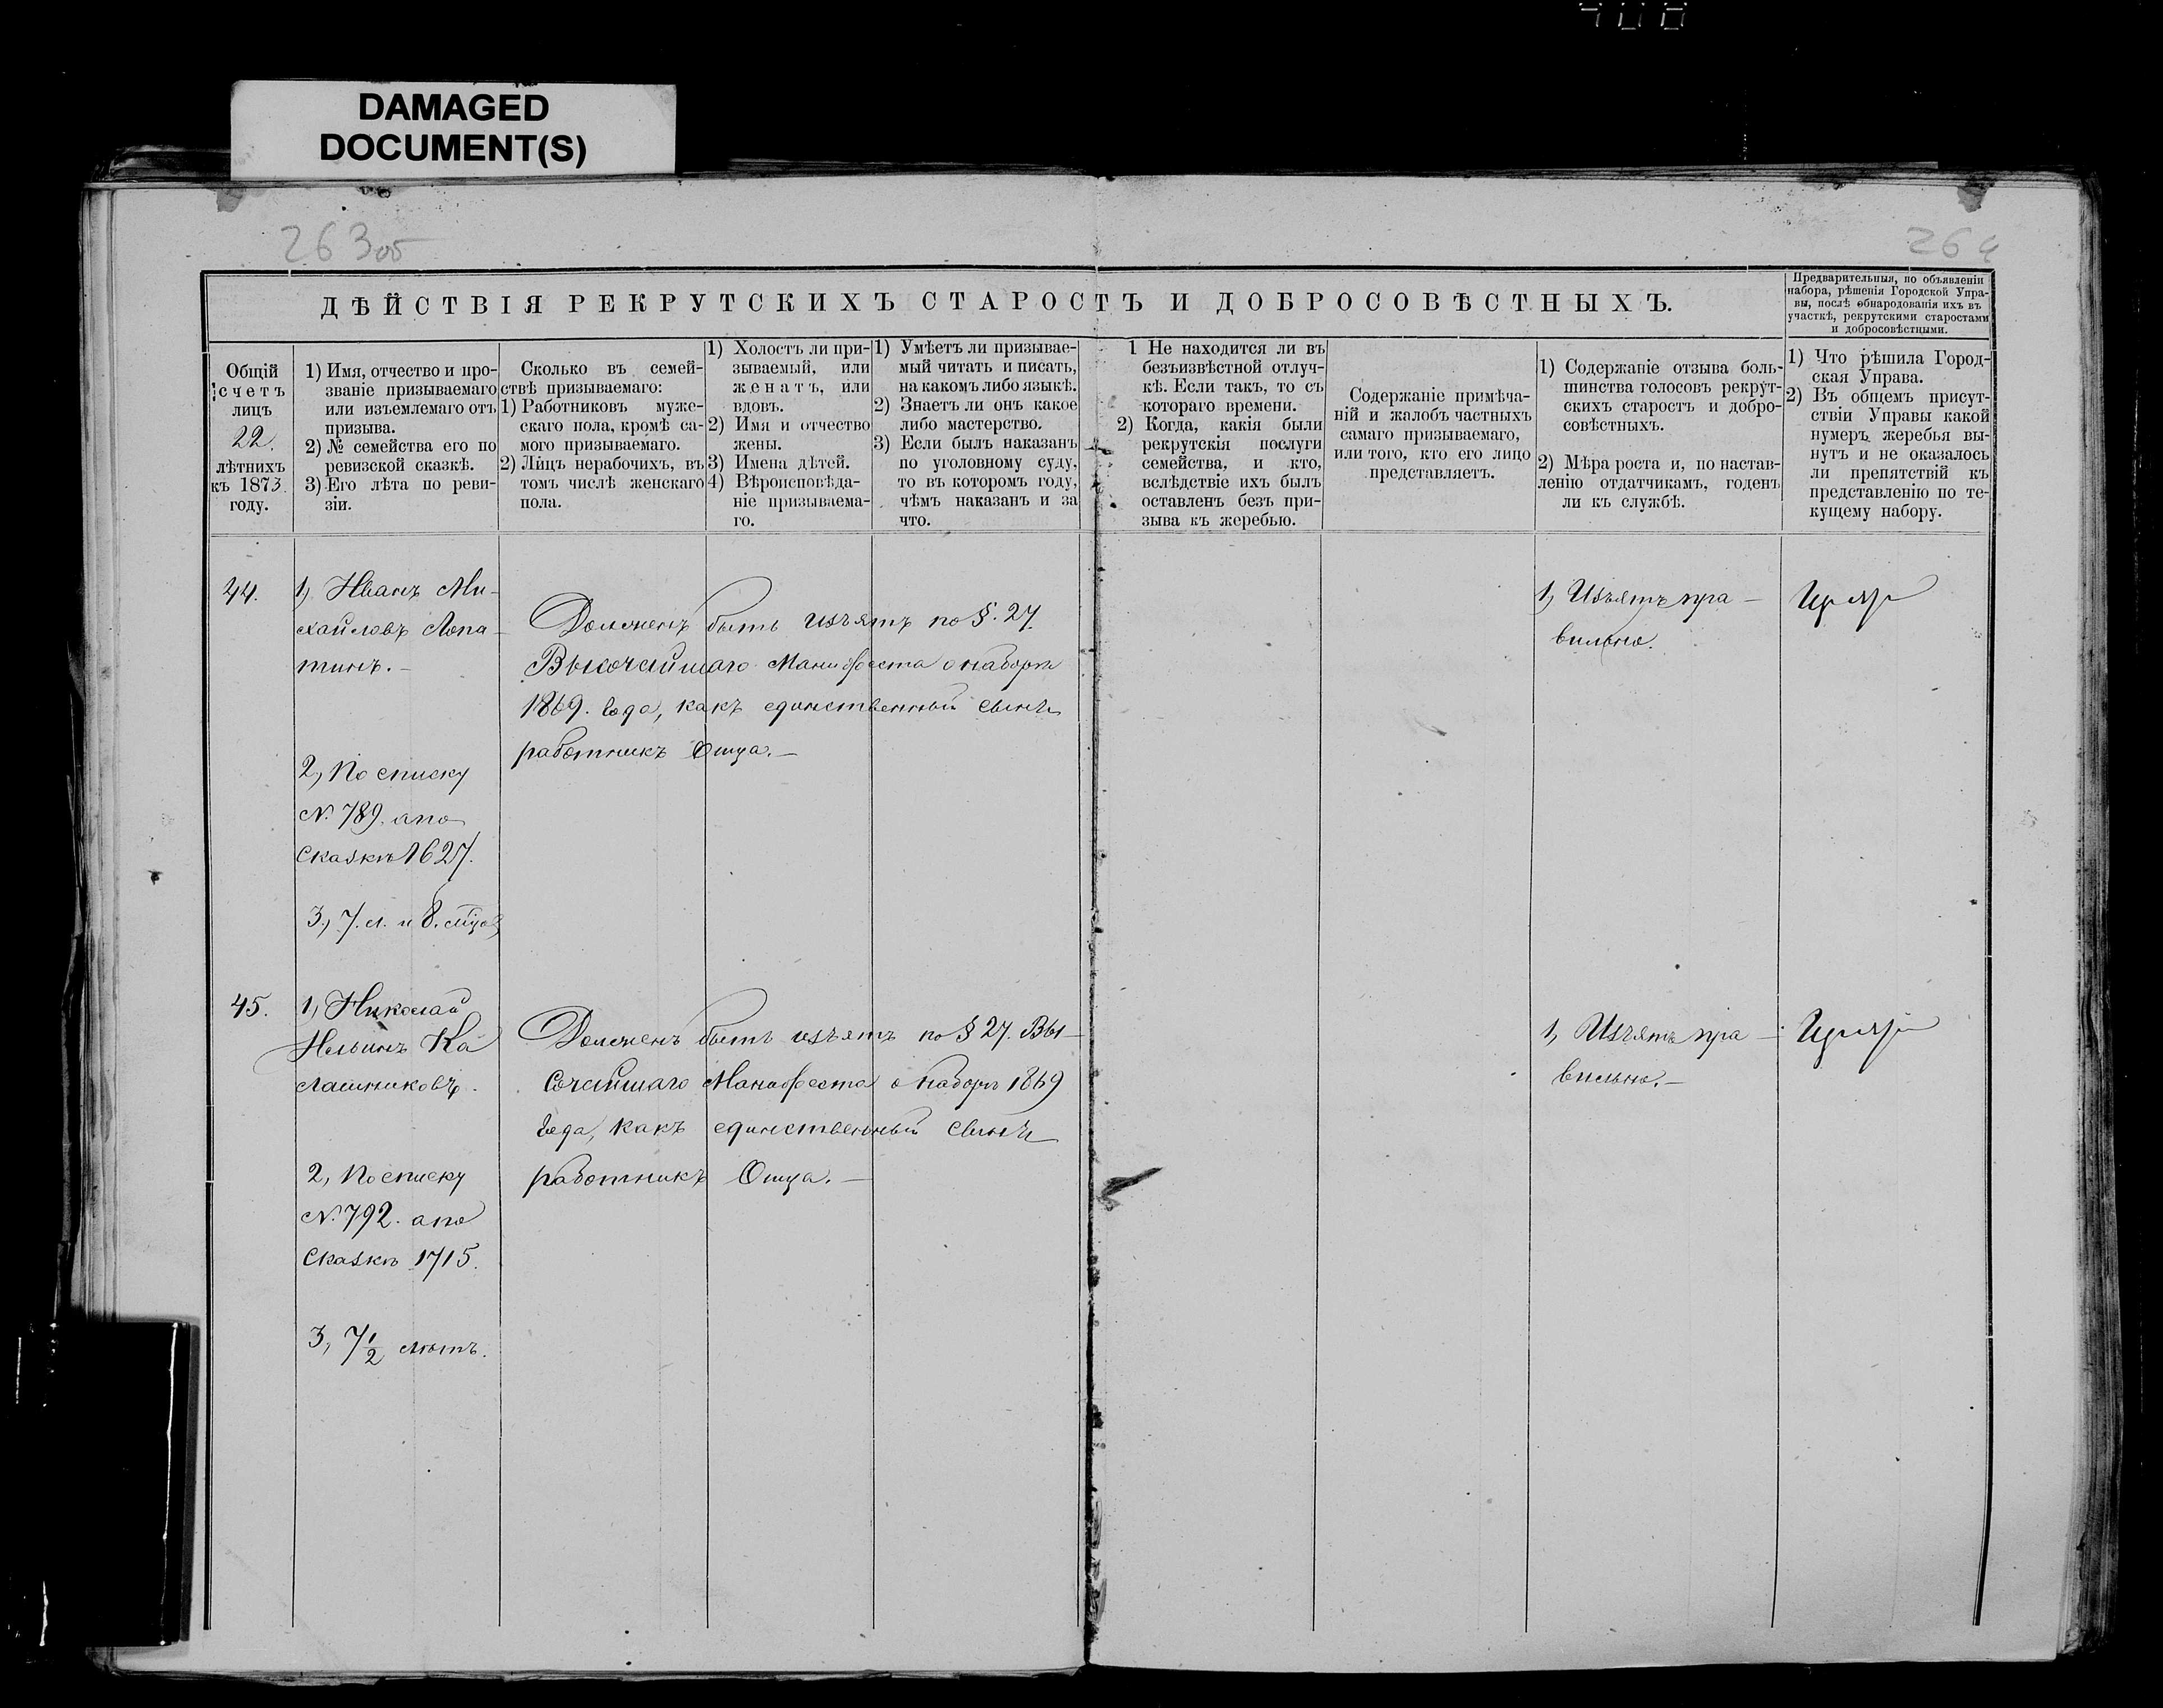 DAMAGED
DOCUMENT(S)
263об
264
ДѢЙСТВІЯ РЕКРУТСКИХЪ СТАРОСТЪ И ДОБРОСОВѢСТНЫХЪ.
Предварительныя, по объявленіи
набора, рѣшенія Городской Упра-
вы, послѣ обнародованія ихъ въ
участкѣ, рекрутскими старостами
и добросовѣстными.
Общій
счетъ
лицъ
22.
лѣтнихъ
къ 1873.
году.
1) Имя, отчество и про-
званіе призываемаго
или изъемлемаго отъ
призыва.
2) № семейства его по
ревизской сказкѣ.
3) Его лѣта по реви-
зіи.
Сколько въ семей-
ствѣ призываемаго:
1) Работниковъ муже-
скаго пола, кромѣ са-
мого призываемаго.
2) Лицъ нерабочихъ, въ
томъ числѣ женскаго
пола.
1) Холостъ ли при-
зываемый, или
женатъ, или
вдовъ.
2) Имя и отчество
жены.
3) Имена дѣтей.
4) Вѣроисповѣда-
ніе призываема-
го.
1) Умѣетъ ли призывае-
мый читать и писать,
на какомъ либо языкѣ.
2) Знаетъ ли онъ какое
либо мастерство.
3) Если былъ наказанъ
по уголовному суду,
то въ которомъ году,
чѣмъ наказанъ и за
что.
1 Не находится ли въ
безъизвѣстной отлуч-
кѣ. Если такъ, то съ
котораго времени.
2) Когда, какія были
рекрутскія послуги
семейства, и кто,
вслѣдствіе ихъ былъ
оставленъ безъ при-
зыва къ жеребью.
Содержаніе примѣча-
ній и жалобъ частныхъ
самаго призываемаго,
или того, кто его лицо
представляетъ.
1) Содержаніе отзыва боль-
шинства голосовъ рекрут-
скихъ старостъ и добро-
совѣстныхъ.
2) Мѣра роста и, по настав-
ленію отдатчикамъ, годенъ
ли къ службѣ.
1) Что рѣшила Город-
ская Управа.
2) Въ общемъ присут-
ствіи Управы какой
нумеръ жеребья вы-
нутъ и не оказалось
ли препятствій къ
представленію по те-
кущему набору.
44.
1) Иванъ Ми-
хайловъ Лопа-
тинъ.-
2, По списку
№ 789. а по
Сказкѣ 1627.
3, 7. л. и 8. мѣсе
Долженъ быть изъятъ по §. 27.
Высочайшаго Манифеста о наборѣ
1869. года, какъ единственный сынъ
работникъ Отца.-
1, Изъятъ пра-
вильно.
45.
1, Николай
Ильинъ Ка
лашниковъ.
2, По списку
№ 792. а по
Сказкѣ 1715.
3, 7 1/2 лѣтъ.
Долженъ быть изъятъ по § 27. Вы-
сочайшаго Манифеста о наборѣ 1869
года, какъ единственный сынъ
работникъ Отца.-
1, Изъятъ пра-
вильно.-